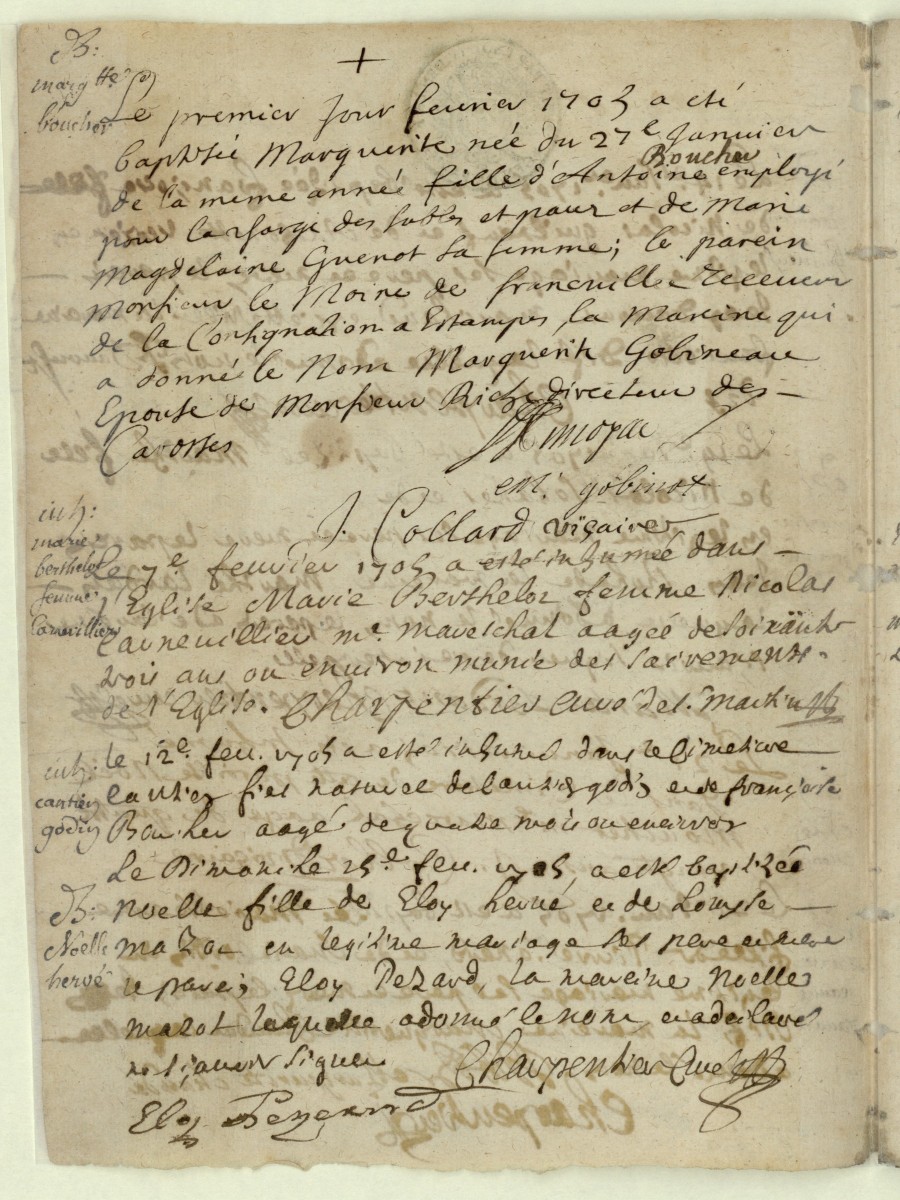 B:
marg tte
boucher
Le premier jour fevrier 1705 a eté
baptisée Marguerite née du 27e Janvier
de la meme année fille d'Antoine Boucher employé
pour la des sables et pavez et de Marie
Magdelaine Guenot sa femme; le parein
Monsieur le Moine de francville Receveur
de la Consignation a Estampes, la Mareine qui
a donné le Nom Marguerite Gobineau
Epouse de Monsieur Riche directeur des
Carosses
gobinot
J. Collard viçaire
inh:
marie
berthelot
femme
Carnevillier
Le 7e fevrier 1705 a esté inhumée dans
l'Eglise Marie Berthelot femme Nicolas
Carnevillier me. mareschal aageé de soixante
trois ans ou environ munie des sacrements
de l'Eglise. Charpentier curé de st. martin
inh:
cantien
godin
le 12e. feu. 1705 a esté inhumé dans le cimetiere
cantien fils naturel de godin et de françoise
Boucher aagé de quatre mois ou environ
B:
Noelle
hervé
Le Dimanche 15e feu. 1705, a esté baptizée
Noelle fille de Eloy hervé et de Louyse
mazot en legitime mariage ses pere et mere
le parein Eloy Pezard, la mareine Noelle
mazot laquelle a donné le nom et a declaré
ne sçavoir signer
Charpentier Curé
Eloy Pezard